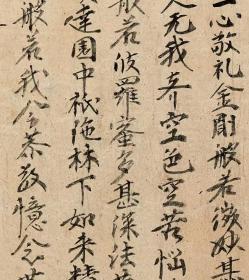 一心敬礼金剛般若微妙甚
人无我齐空色空若
般若波羅蜜多甚深法
達園中祇陁林下如来精
般若我今恭敬憶念